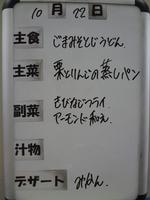 10月22日
主食 ごまみそとじうどん
主菜 栗とりんごの蒸しパン
副菜 きびなごフライ
アーモンド和え
汁物
デザート みかん